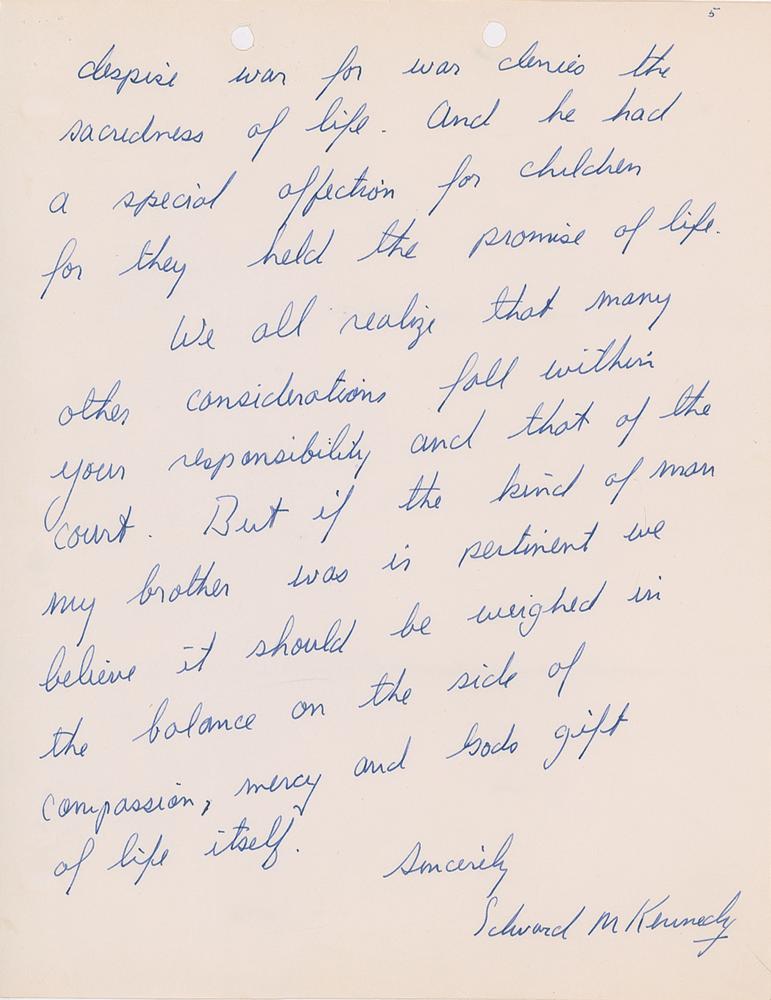 5
despise war for war denies the
sacredness of life. And he had
a special affection for children
for they held the promise of life.
We all realize that many
other considerations fall within
your responsibility and that of the
court. But if the kind of man
my brother was is pertinent we
believe it should be weighed in
the balance on the side of
compassion, mercy and Gods gift
of life itself.
Sincerely
Edward M Kennedy